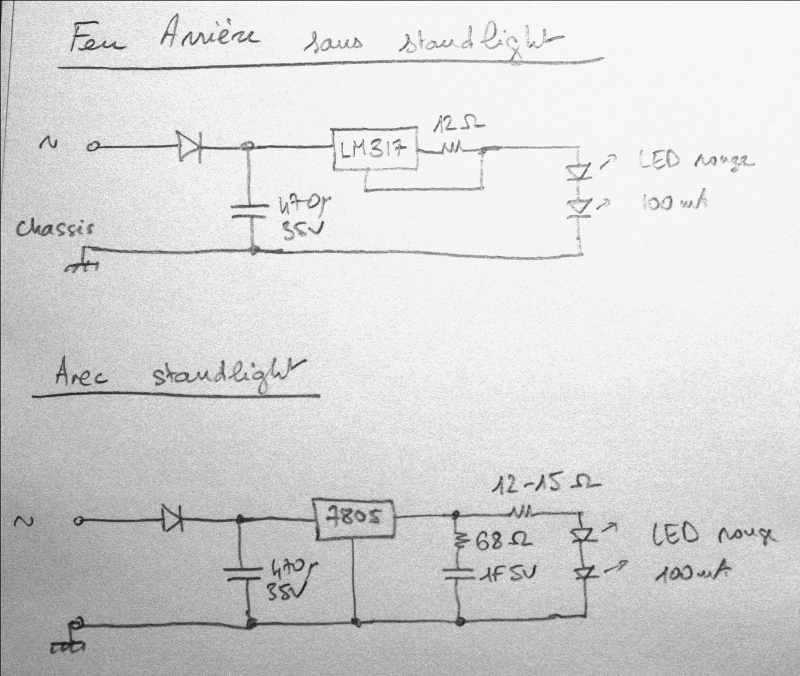 Feu Arrière sans standlight
12 Ω
~
LM317
LED rouge
100mA
470µ
35V
chassis
Avec standlight
12-15 Ω
~
7805
68Ω
LED rouge
100mA
470µ
35V
1F 5V